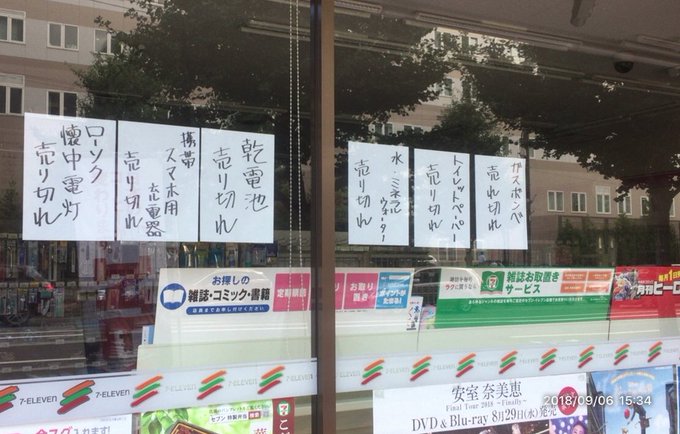 2018/09/06 15:34
ローソク
懐中電灯
売り切れ
携帯
スマホ用
充電器
売り切れ
乾電池
売り切れ
水・ミネラル
ウォーター
売り切れ
トイレットペーパー
売り切れ
ガスボンベ
売れ切れ
お探しの
雑誌・コミック・書籍
店員までお申し付けください
定期購読
お取り置き
ポイントが
たまる!
雑誌お取置き
サービス
毎月1日
月刊ヒーロ
7-ELEVEN
7-ELEVEN
7-ELEVEN
セブン特製弁当
検索
安室 奈美恵
Final Tour 2018 ~Finally~
DVD & Blu-ray 8月29日(水)発売
2018/09/06 15:34